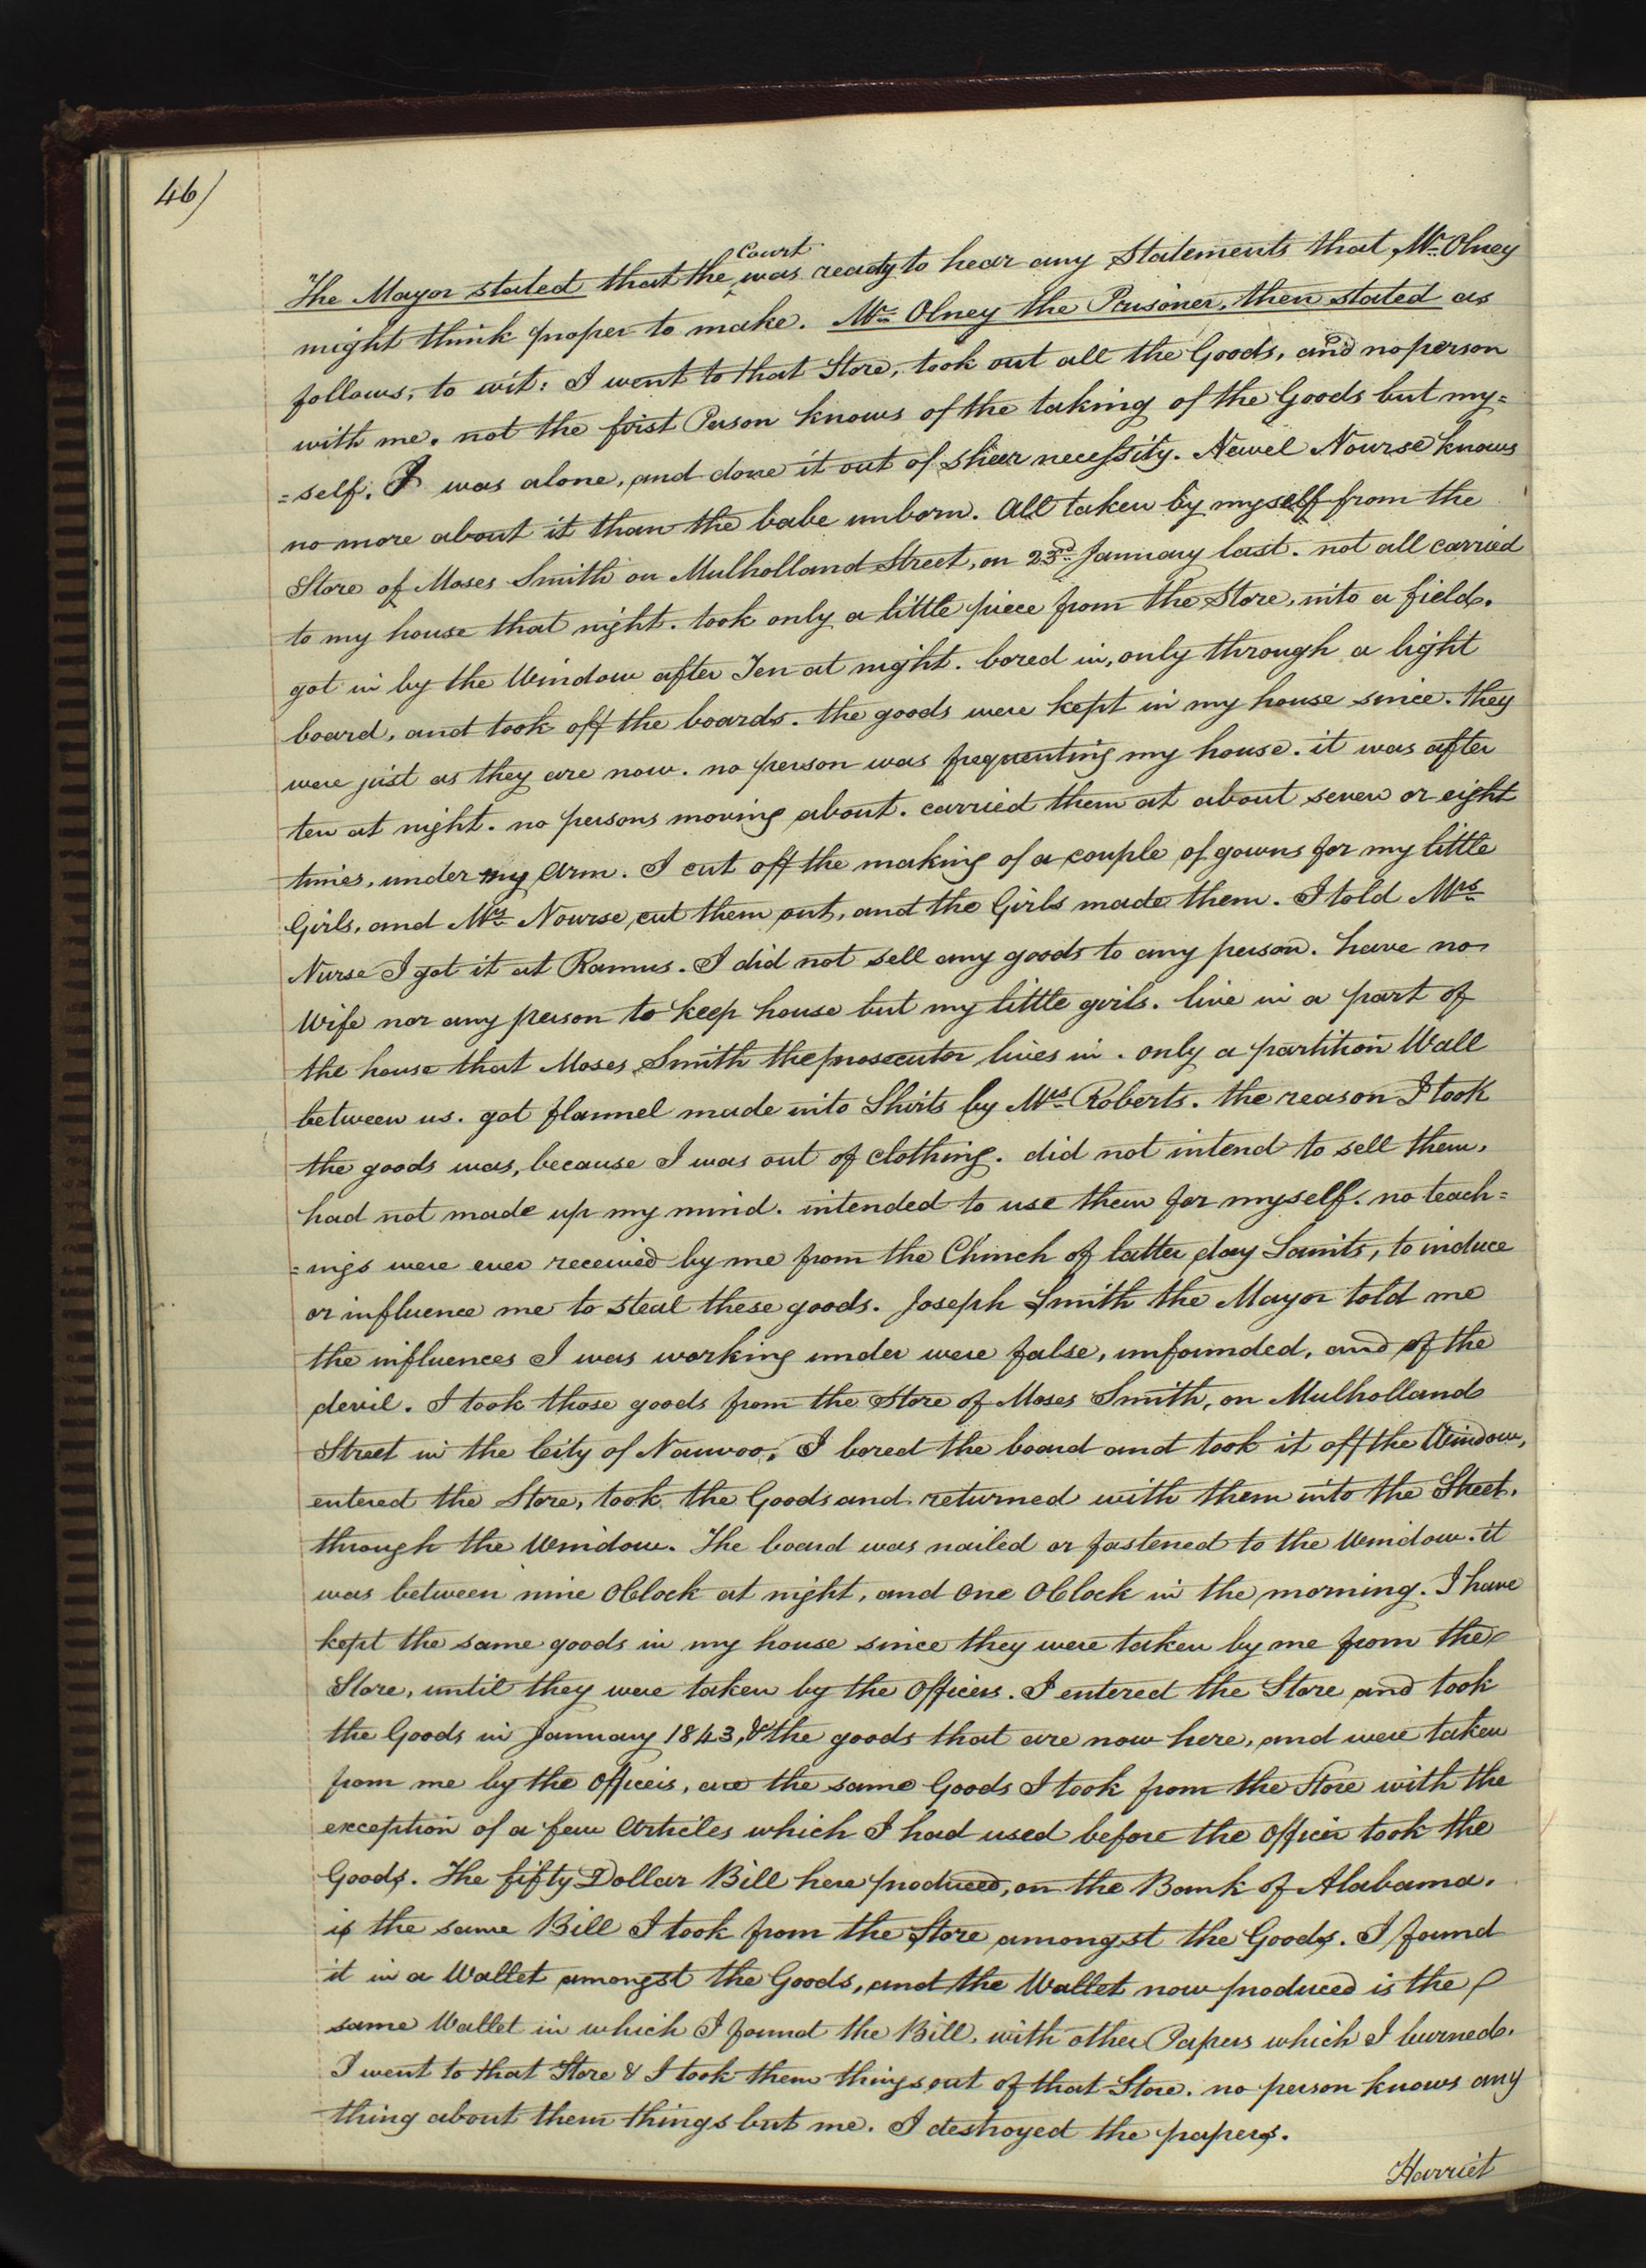 46)
Court
The Mayor stated that the ‸ was ready to hear any Statements that Mr. Olney
might think proper to make. Mr. Olney the Prisoner, then stated as
follows, to wit: I went to that Store, took out all the Goods, and no person
with me. not the first Person knows of the taking of the Goods but my=
=self. I was alone, and done it out of sheer necessity. Newel Nourse knows
no more about it than the babe unborn. All taken by myself from the
Store of Moses Smith on Mulholland Street, on 23d. January last. not all carried
to my house that night. took only a little piece from the Store, into a field.
got in by the Window after Ten at night. bored in, only through a light
board, and took off the boards. the goods were kept in my house since. they
were just as they are now. no person was frequenting my house. it was after
ten at night. no persons moving about. carried them at about seven or eight
times, under my Arm. I cut off the making of a couple of gowns for my little
Girls, and Mrs. Nourse cut them out, and the Girls made them. I told Mrs.
Nurse I got it at Ramus. I did not sell any goods to any person. have no
Wife nor any person to keep house but my little girls. live in a part of
the house that Moses Smith the prosecutor lives in. only a partition Wall
between us. got flannel made into Shirts by Mrs. Roberts. the reason I took
the goods was, because I was out of clothing. did not intend to sell them,
had not made up my mind. intended to use them for myself. no teach=
=ings were ever received by me from the Church of latter day Saints, to induce
or influence me to steal these goods. Joseph Smith the Mayor told me
the influences I was working under were false, unfounded, and of the
devil. I took those goods from the Store of Moses Smith, on Mulholland
Street in the City of Nauvoo. I bored the board and took it off the Window,
entered the Store, took the Goods and returned with them into the Street,
through the Window. The board was nailed or fastened to the Window. it
was between nine OClock at night, and One OClock in the morning. I have
kept the same goods in my house since they were taken by me from the
Store, until they were taken by the Officers. I entered the Store and took
the Goods in January 1843, & the goods that are now here, and were taken
from me by the Officers, are the same Goods I took from the Store with the
exception of a few Articles which I had used before the Officer took the
Goods. The fifty Dollar Bill here produced, on the Bank of Alabama.
is the same Bill I took from the Store amongst the Goods. I found
it in a Wallet amongst the Goods, and the Wallet now produced is the
same Wallet in which I found the Bill, with other Papers which I burned.
I went to that Store & I took them things out of that Store. no person knows any
thing about them things but me. I destroyed the papers.
Harriet